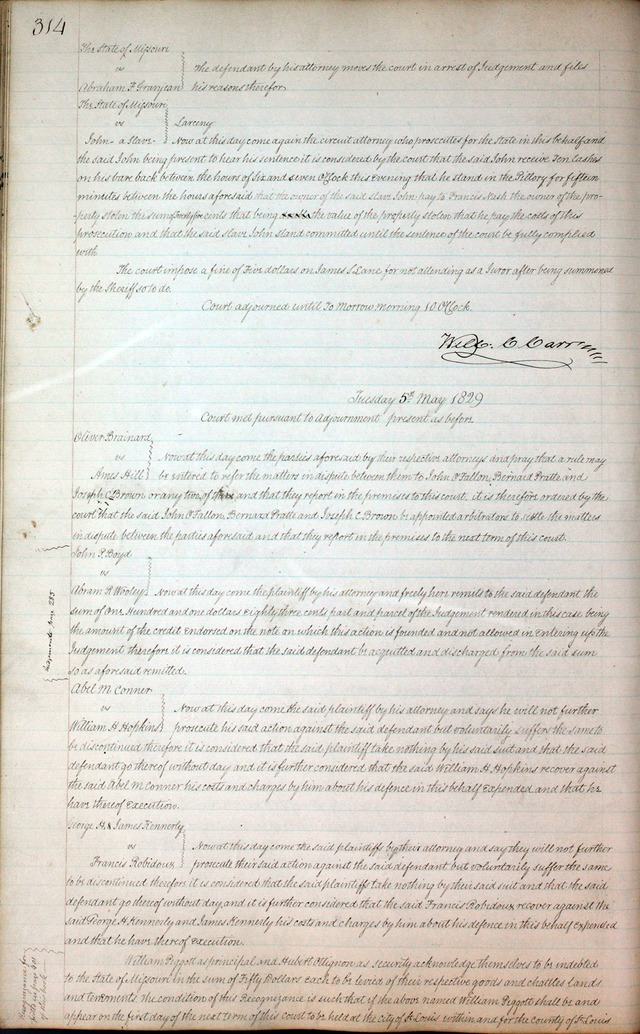 314
The State of Missouri
vs
The defendant by his attorney moves the court in arrest of Judgement and files
Abraham F. Granjean
his reasons therefor
The State of Missouri
vs
Larceny
John - a Slave
Now at this day come again the circuit attorney who prosecuttes for the State in this behalf and
the said John being present to hear his sentence it is considered by the court that the said John receive Ten lashes
on his bare back between the hours of Six and seven O'Clock this Evening that he stand in the Pillory for fifteen
minutes between the hours aforesaid that the owner of the said slave John, pay to Francis Nash the owner of the pro-
-perty stolen the sum forty five cents that being the value of the property stolen that he pay the costs of this
prosecution and that the said slave John stand committed until the sentence of the court be fully complied
with
The court impose a fine of Five dollars on James S. Lane for not attending as a Juror after being summoned
by the Sheriff so to do.
Court adjourned until To Morrow morning 10 O'Clock.
Will. C Carr
Tuesday 5th May 1829
Court met pursuant to adjournment present as before
Oliver Brainard
vs
Now at this day come the parties aforesaid by their respective attorneys and pray that a rule may
Ames Hill
be entered to refer the matters in dispute between them to John O'Fallon, Bernard Pratte and
Joseph C. Brown or any two of them and that they report in the premises to this court. it is therefore ordered by the
court that the said John O'Fallon, Bernard Pratte and Joseph C Brown be appointed arbitrators to settle the matters
in dispute between the parties aforesaid and that they report in the premises to the next term of this court.
John P. Boyd
vs
Abram H Wooley
Now at this day come the plaintiff by his attorney and freely here remits to the said defendant the
sum of One Hundred and one dollars Eighty three cents part and parcel of the Judgement rendered in this case being
the amount of the credit endorsed on the note on which this action is founded and not allowed in entering up the
Judgement therefore it is considered that the said defendant be acquitted and discharged from the said sum
so as aforesaid remitted.
Judgements page 285
Abel M Conner
vs
Now at this day come the said plaintiff by his attorney and says he will not further
William H. Hopkins
prosecute his said action against the said defendant but voluntarily suffers the same to
be discontinued therefore it is considered that the said plaintiff take nothing by his said suit and that the said
defendant go thereof without day and it is further considered that the said William H. Hopkins recover against
the said Abel M Conner his costs and charges by him about his defence in this behalf Expended and that he
have thereof Execution.
George H. & James Kennerly
vs
Now at this day come the said plaintiffs by their attorney and say they will not further
Francis Robidoux
prosecute their said action against the said defendant but voluntarily suffer the same
to be discontinued therefore it is considered that the said plaintiff take nothing by their said suit and that the said
defendant go thereof without day and it is further considered that the said Francis Robidoux recover against the
said George H. Kennerly and James Kennerly his costs and charges by him about his defence in this behalf Expended
and that he have thereof Execution.
William Pigott as principal and Hubert Ollignon as security acknowledge themselves to be indebted
to the State of Missouri in the sum of Fifty Dollars each to be levied of their respective goods and chattles Lands
and tenements. the condition of this Recognizance is such that if the above named William Pigott shall be and
appear on the first day of the next term of this court to be held at the city of St. Louis within and for the county of St. Louis